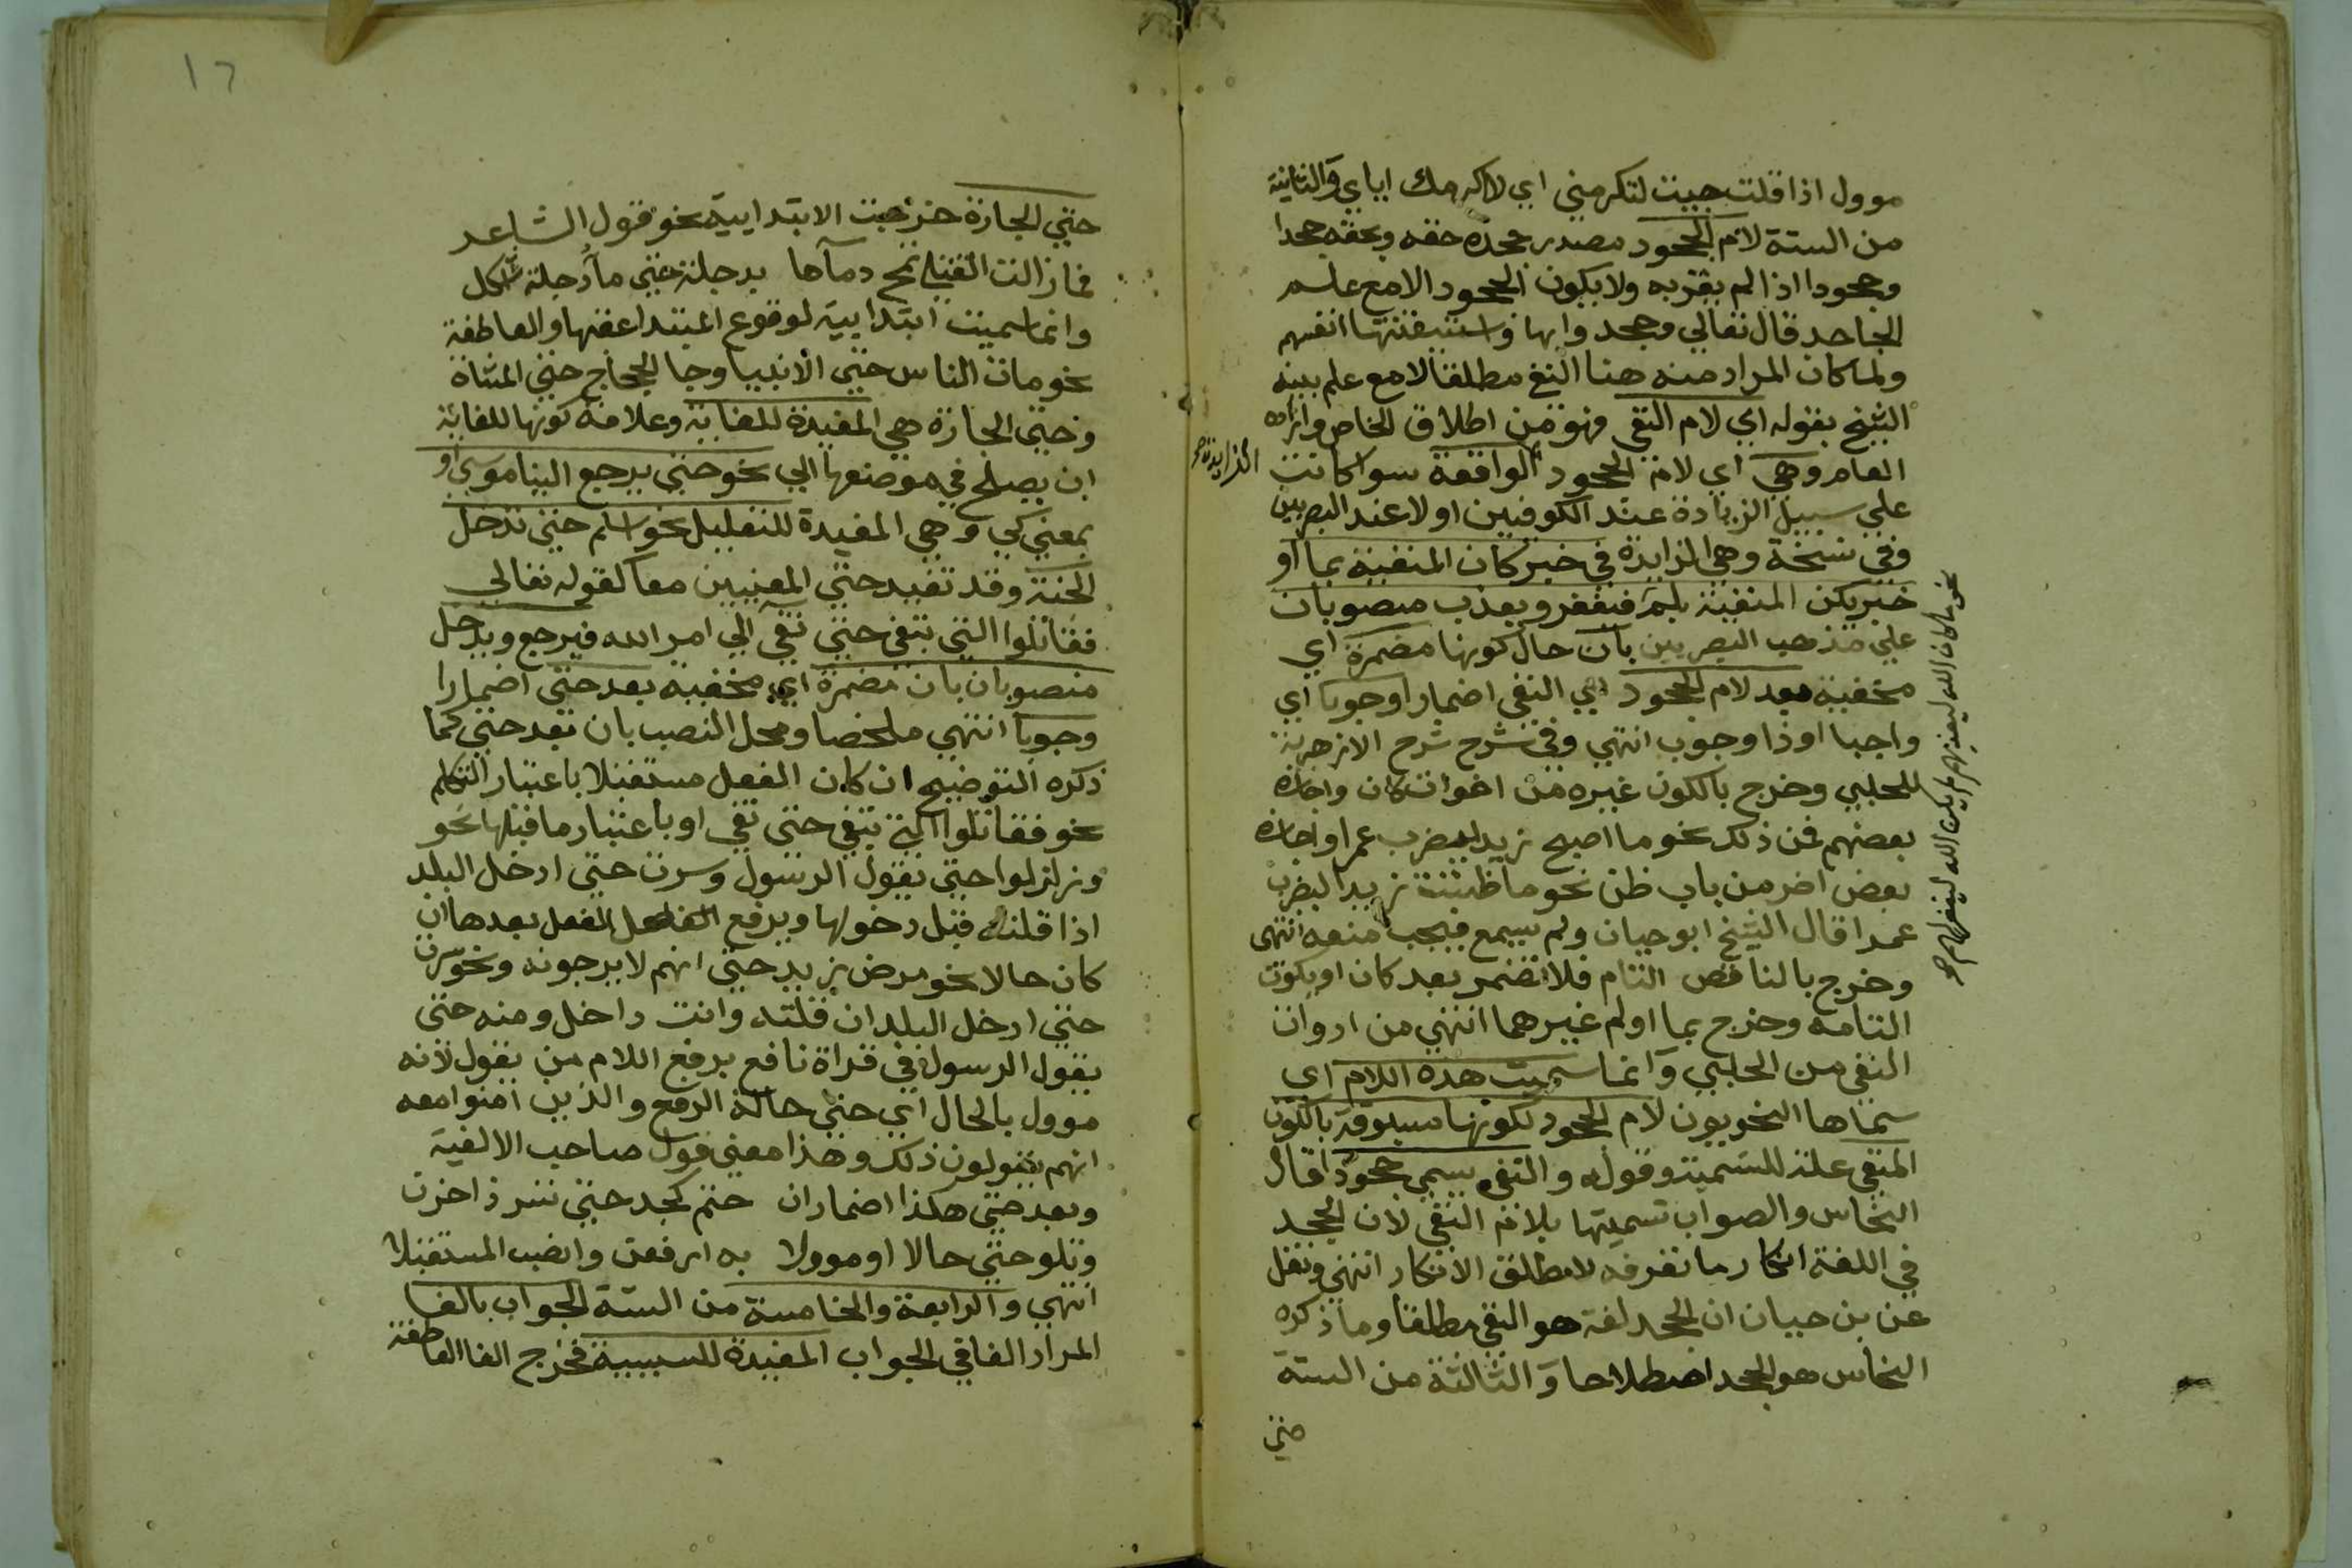 موول اذا قلت جيت لتكرمني اي لاكرامك اياي والثانية
من الستة لام الجحود مصدر جحده حقه وبحقه جحدا
وجحودا اذا لم يقر به ولا يكون الجحود الا مع علم
الجاحد قال تعالي وجحدوا بها واستيقنتها انفسهم
ولما كان المراد منه هنا النفي مطلقا لا مع علم بينه
الشيخ بقوله اي لام النفي فهو من اطلاق الخاص وارادة
العام وهي اي لام الجحود الواقعة سوا كانت
الزايدة صح
علي سبيل الزيادة عند الكوفيين او لا عند البصريين
وفي نسخة وهي الزايدة في خبر كان المنفية بما او
خبر يكن المنفية بلم فيغفر ويعذب منصوبان
علي مذهب البصريين بان حال كونها مضمرة اي
مخفية بعد لام الجحود اي النفي اضمارا وجوبا اي
واجبا او ذا وجوب انتهي وفي شرح شرح الازهرية
للحلبي وخرج بالكون غيره من اخوات كان واجازه
بعضهم في ذلك نحو ما اصبح زيد ليضرب عمرا واجازه
بعض اخر من باب ظن نحو ما ظننت زيدا ليضرب
عمرا قال الشيخ ابو حيان ولم يسمع فيجب منعه انتهى
وخرج بالناقص التام فلا تضمر بعد كان او يكون
التامة وخرج بما او لم غيرهما انتهي من ادوات
النفي من الحلبي وانما سميت هذه اللام اي
سماها النحويون لام الجحود لكونها مسبوقة بالكون
المنفي علة للتسمية وقوله والنفي يسمي جحودا قال
النحاس والصواب تسميتها بلام النفي لان الجحد
في اللغة انكار ما تعرفه لا مطلق الانكار انتهي ونقل
عن بن حيان ان الجحد لغة هو النفي مطلقا وما ذكره
النحاس هو الجحد اصطلاحا والثالثة من الستة
حتي
نحو ما كان الله ليعذبهم لم يكن الله ليغفر لهم صح
١٦
حتي الجارة خرجت الابتدايية نحو قول الشاعر
فما زالت القتلي تمج دماها بدجلة حتي ما دجلة اشكل
وانما سميت ابتدايية لوقوع المبتدا عقبها والعاطفة
نحو مات الناس حتي الانبيا وجا الحجاج حتي المشاة
وحتي الجارة هي المفيدة للغاية وعلامة كونها للغاية
ان يصلح في موضعها الي نحو حتي يرجع الينا موسي او
بمعني كي وهي المفيدة للتعليل نحو اسلم حتي تدخل
الجنة وقد تفيد حتي المعنيين معا كقوله تعالي
فقاتلوا التي تبغي حتي تفي الي امر الله فيرجع ويدخل
منصوبان بان مضمرة اي مخفية بعد حتي اضمارا
وجوبا انتهي ملخصا ومحل النصب بان بعد حتي كما
ذكره التوضيح ان كان الفعل مستقبلا باعتبار التكلم
نحو فقاتلوا التي تبغي حتي تفي او باعتبار ما قبلها نحو
وزلزلوا حتي يقول الرسول وسرت حتي ادخل البلد
اذا قلته قبل دخولها ويرفع الفعل بعدها ان
كان حالا نحو مرض زيد حتي انهم لا يرجونه ونحو سرت
حتي ادخل البلد ان قلته وانت داخل ومنه حتي
يقول الرسول في قراة نافع برفع اللام من يقول لانه
موول بالحال اي حتي حالة الرفع والذين امنوا معه
انهم يقولون ذلك وهذا معني قول صاحب الالفية
وبعد حتي هكذا اضمار ان حتم كجد حتي تسر ذا حزن
وتلو حتي حالا او موولا به ارفعن وانصب المستقبلا
انتهي والرابعة والخامسة من الستة الجواب بالفا
المراد الفا في الجواب المفيدة للسببية فخرج الفا العاطفة